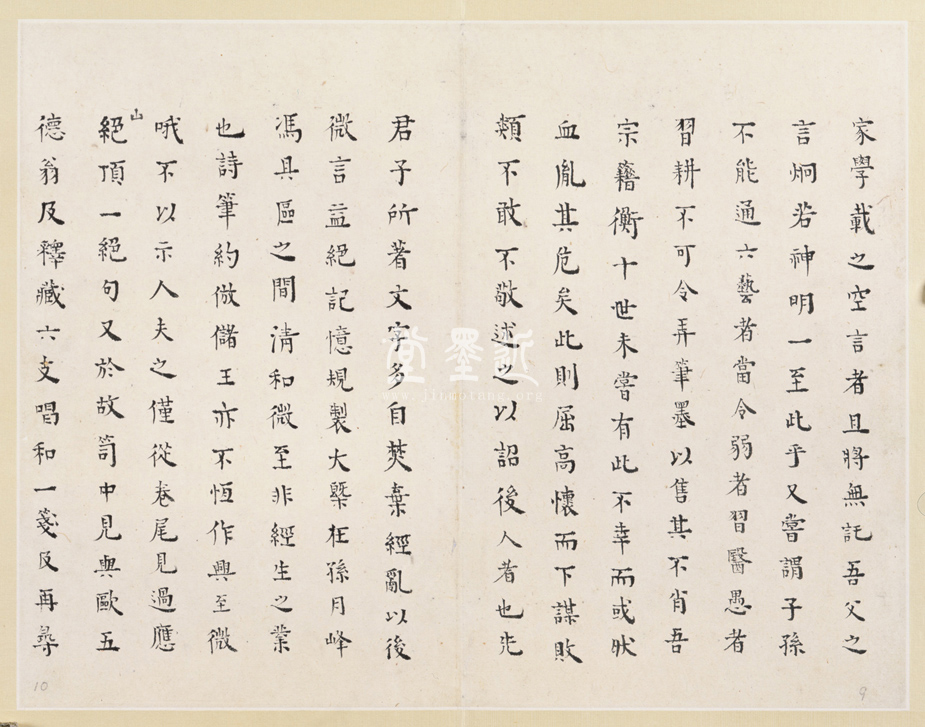 家學載之空言者且將無託吾父之
言炯若神明一至此乎又嘗謂子孫
不能通六藝者當令弱者習醫愚者
習耕不可令弄筆墨以售其不肖吾
宗籍衡十世未嘗有此不幸而或狀
血胤其危矣此則屈高懷而下謀敗
類不敢不敬述之以詔後人者也先
君子所著文字多自焚棄經亂以後
微言益絕記憶規製大槩在孫月峰
馮具區之間清和微至非經生之業
也詩筆約倣儲王亦不恆作興至微
哦不以示人夫之僅從卷尾見過應
山
絕頂一絕句又於故笥中見與歐五
德翁及釋藏六支唱和一箋及再尋
近墨堂
www.jinmotang.org
9
10